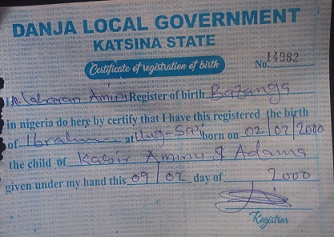 DANJA LOCAL GOVERNMENT
KATSINA STATE
Certificate of registration of birth
No. 14982
Amin Register of birth Bazanga
in nigeria do here by certify that I have this registered the birth
of Ibrahim at Ung-Sa'i born on 02/02/2000
the child of Kabir Aminu & Adama
given under my hand this 09/02 day of 2000
Registrar